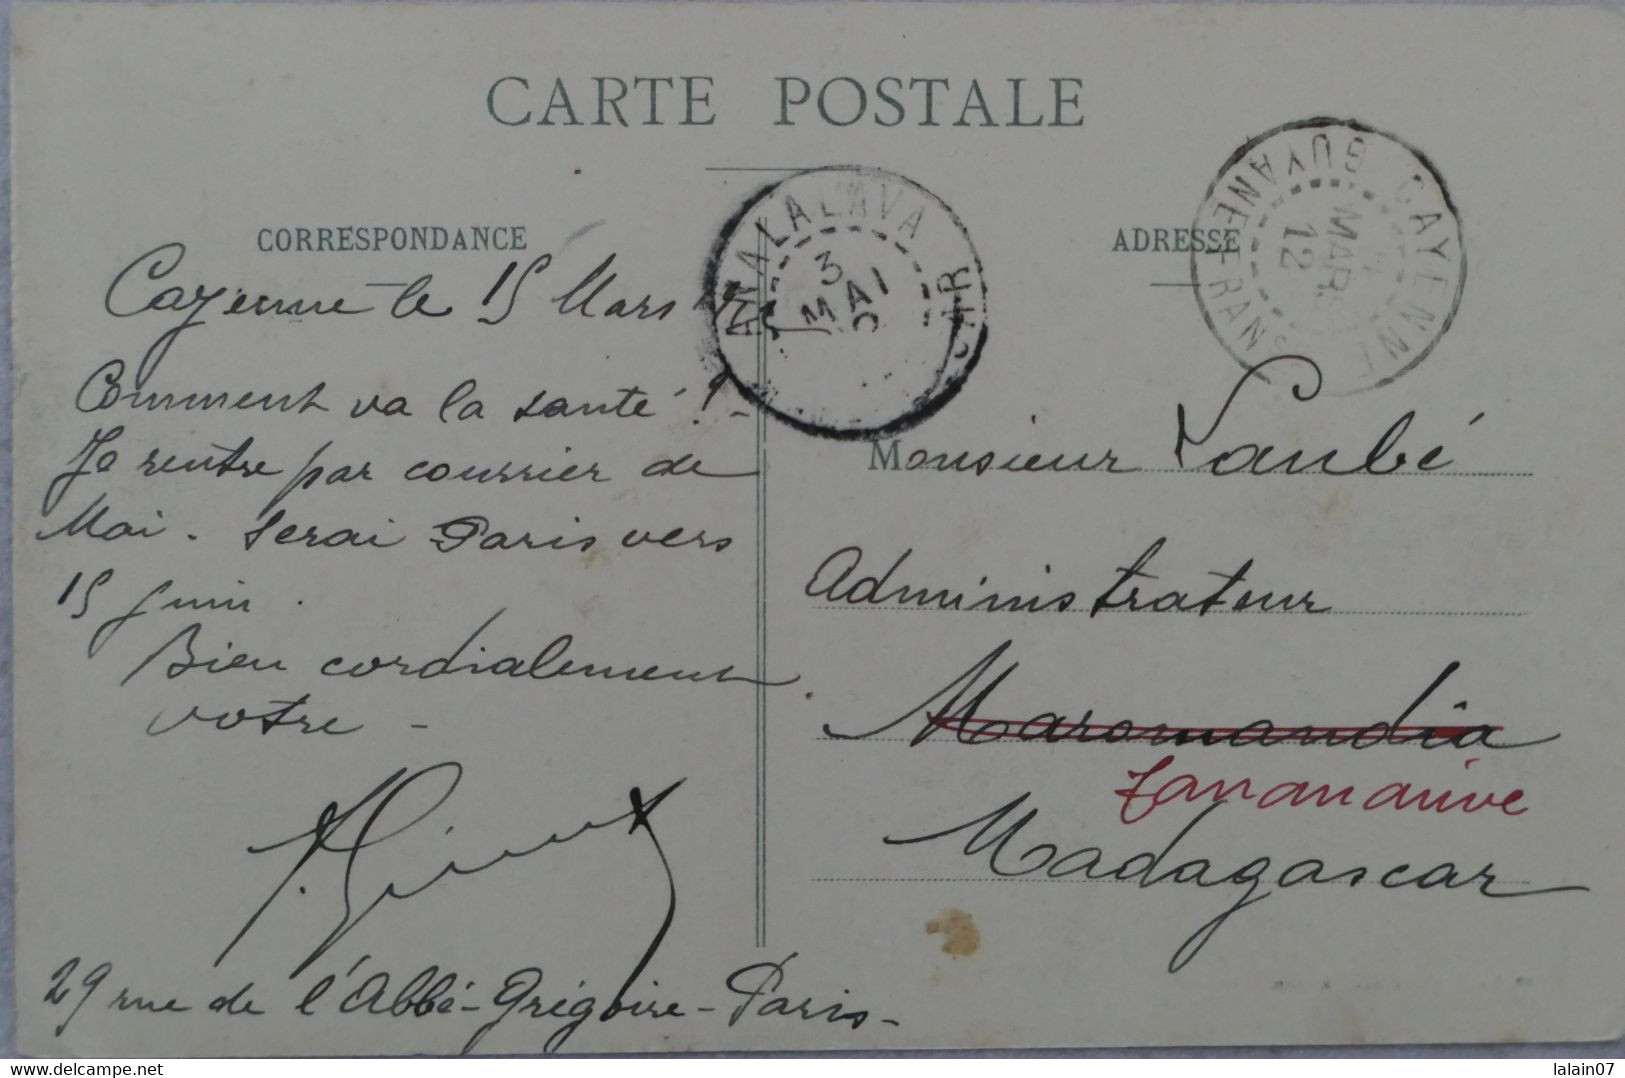 CARTE POSTALE
CORRESPONDANCE
Cayenne le 15 Mars
Comment va la santé ? -
Je rentre par courrier de
Mai. Serai Paris vers
15 Juin.
Bien cordialement
votre -
29 rue de l'Abbé-Grégoire-Paris-
ANALALAVA
3
MAI
ADRESSE
CAYENNE
GUYANE FRANS
MARS
12
Monsieur Laubé
Administrateur
Maromandia
Tananarive
Madagascar
delcampe.net
lalain07